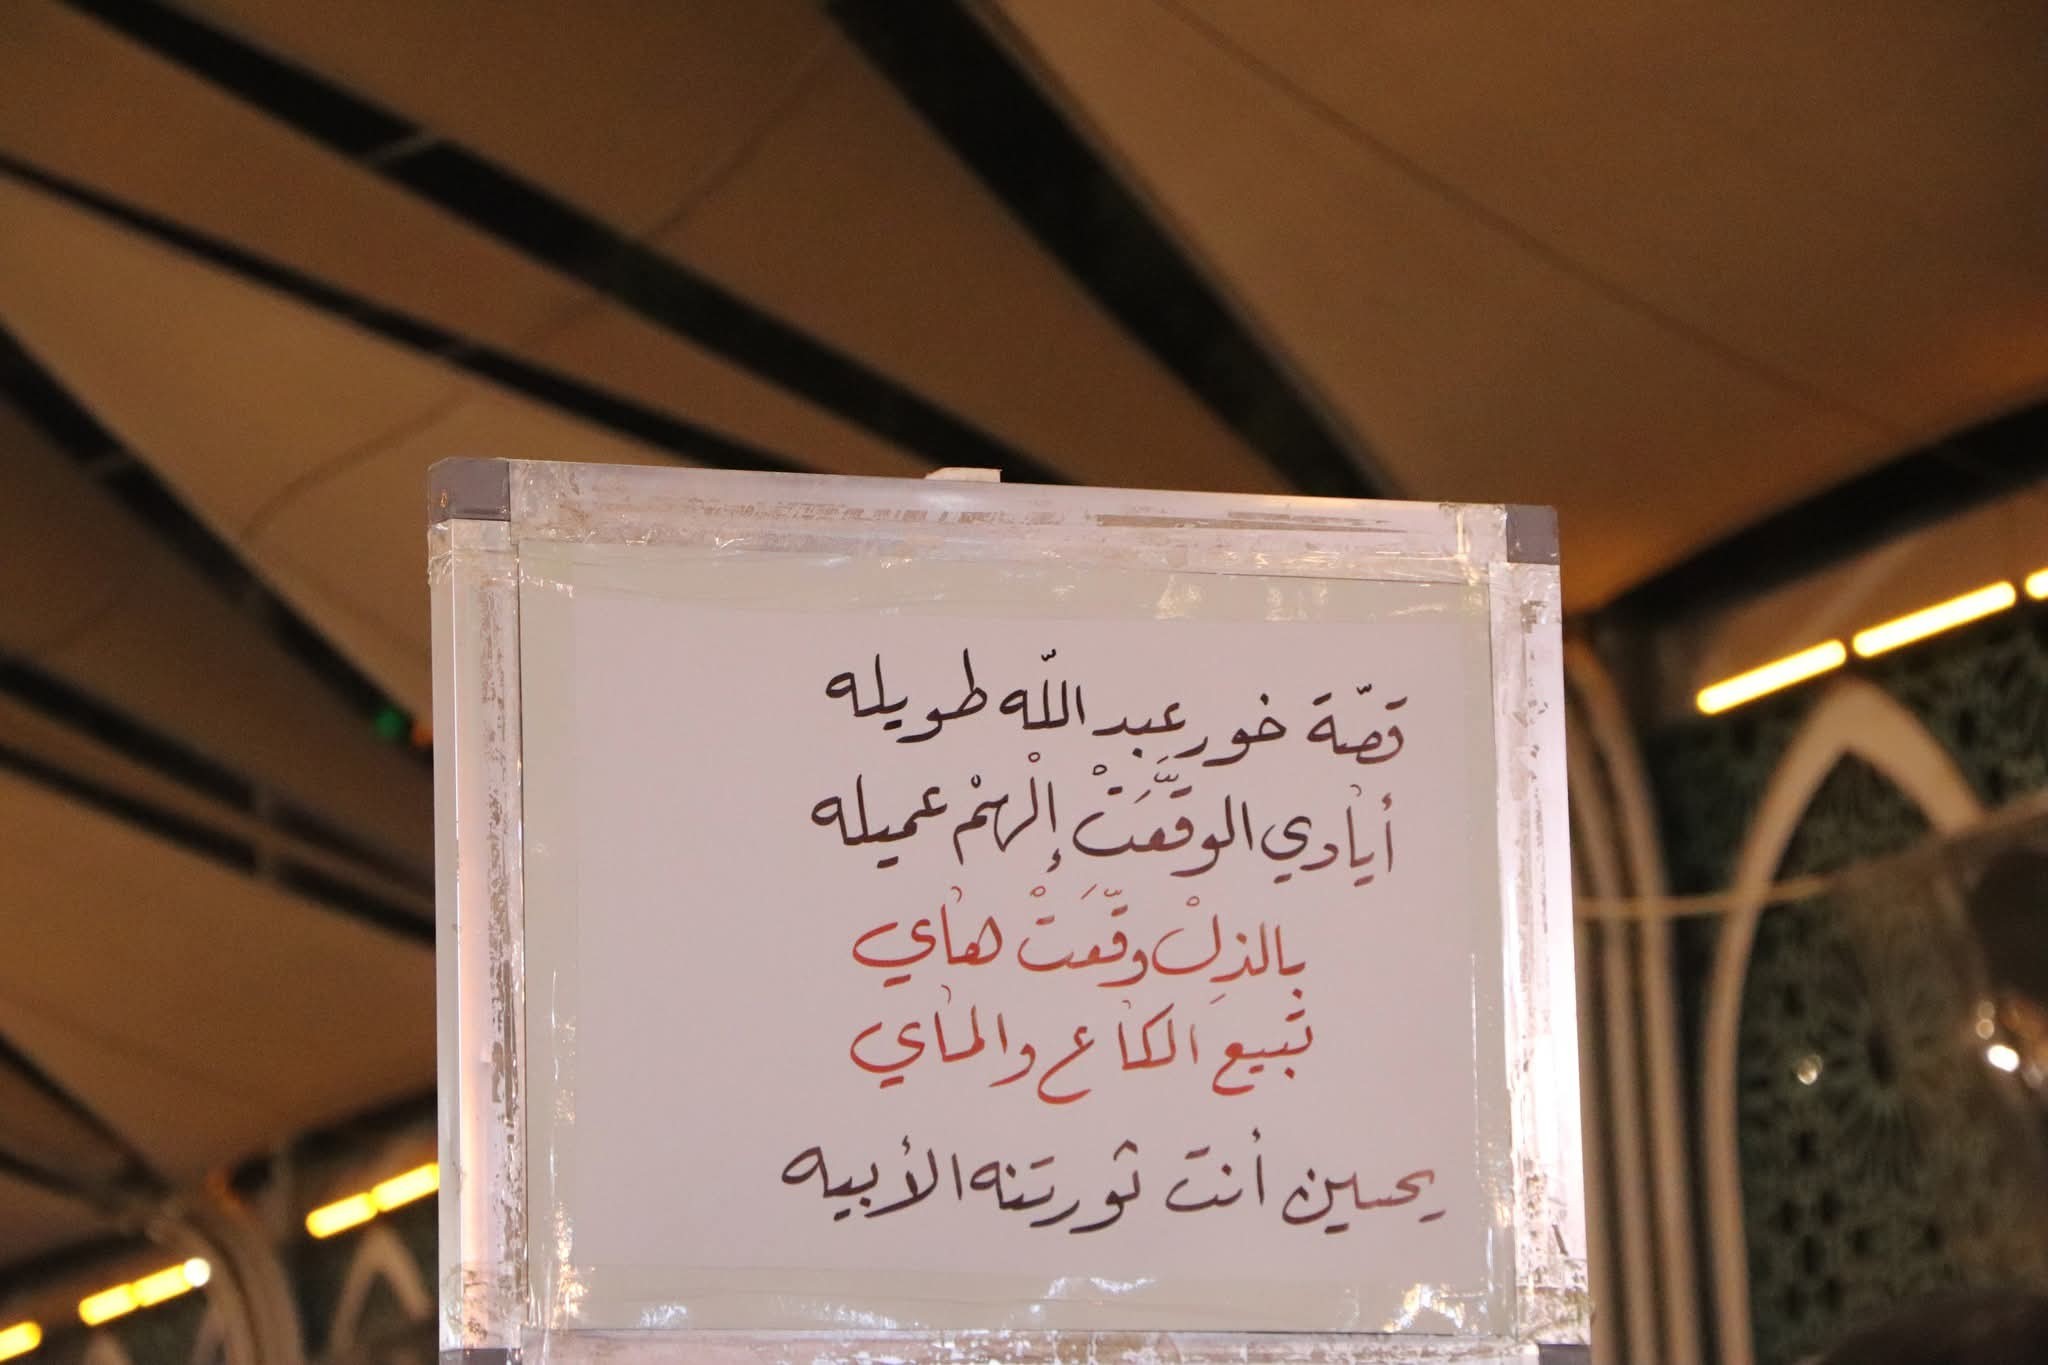 قصّة خور عبد اللّه طويله
أيادي الوقَّعَتْ إلْهمْ عميله
بالذِلْ وقّعَتْ هاي
تبيع الكاع والماي
يحسين أنت ثورتنه الأبيه